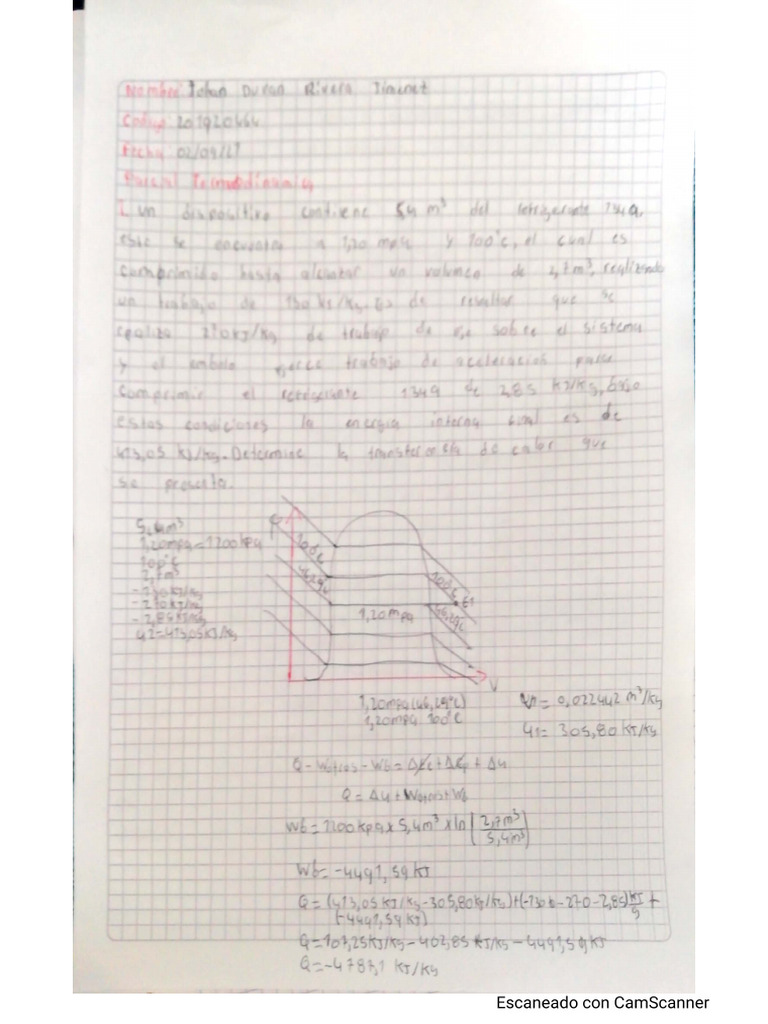 Nombre Johan Duvan Rivera Jimenez
Codigo
Fecha 02/09/21
Parcial Termodinamica
un dispositivo contiene 5,4 m³ del refrigerante 134a,
este se encuentra a 1,20 mpa y 100°c, el cual es
comprimido hasta alcanzar un volumen de 2,7 m³, realizando
un trabajo de 130 KJ/Kg, es de resaltar que se
realiza 270KJ/Kg de trabajo de eje sobre el sistema
y el embolo ejerce trabajo de aceleracion para
comprimir el refrigerante 134a de 2,85 KJ/Kg, bajo
estas condiciones la energia interna final es de
413,05 KJ/Kg. Determine la transferencia de calor que
se presenta.
5,4m³
1,20mpa=1200kpa
100°c
2,7m³
-270KJ/Kg
-2,85KJ/Kg
u2=413,05KJ/Kg
P
100°c
46,29°c
100°c E1
46,29°c
1,20mpa
V
1,20mpa (46,29°c)
1,20mpa 100°c
V1= 0,022442 m³/Kg
u1= 305,80 KJ/Kg
Q - Wotros - Wb = Δkc + ΔEp + Δu
Q = Δu + Wotros + Wb
Wb = 1200kpa x 5,4m³ x ln(2,7m³/5,4m³)
Wb= -4491,59 KJ
Q= (413,05 KJ/Kg - 305,80KJ/Kg) + (-130 -270 - 2,85) +
(-4491,59 KJ)
Q=107,25KJ/Kg - 402,85 KJ/Kg - 4491,59 KJ
Q=-4787,1 KJ/Kg
Escaneado con CamScanner